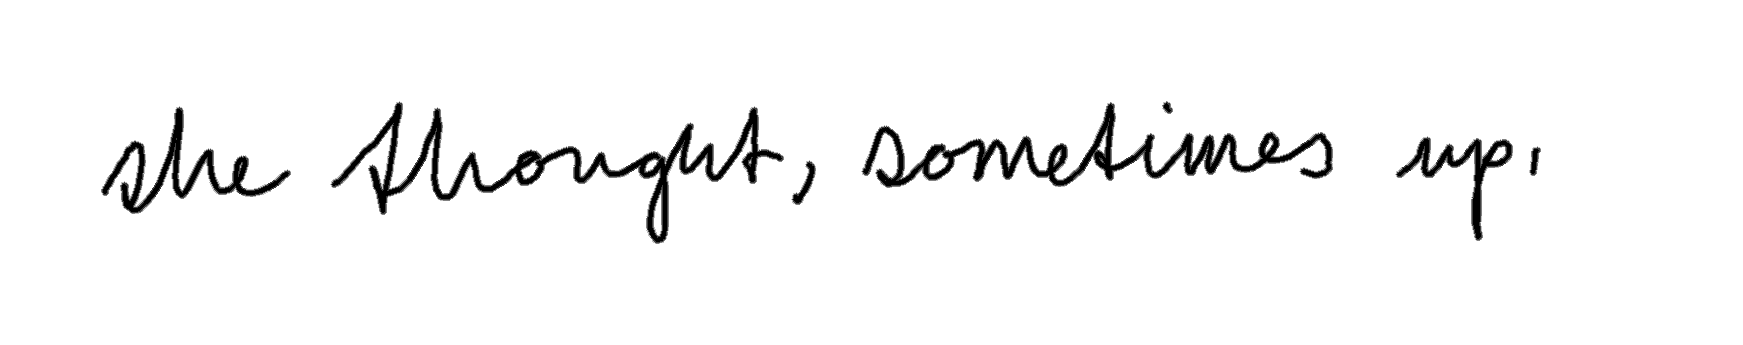 she thought, sometimes up,